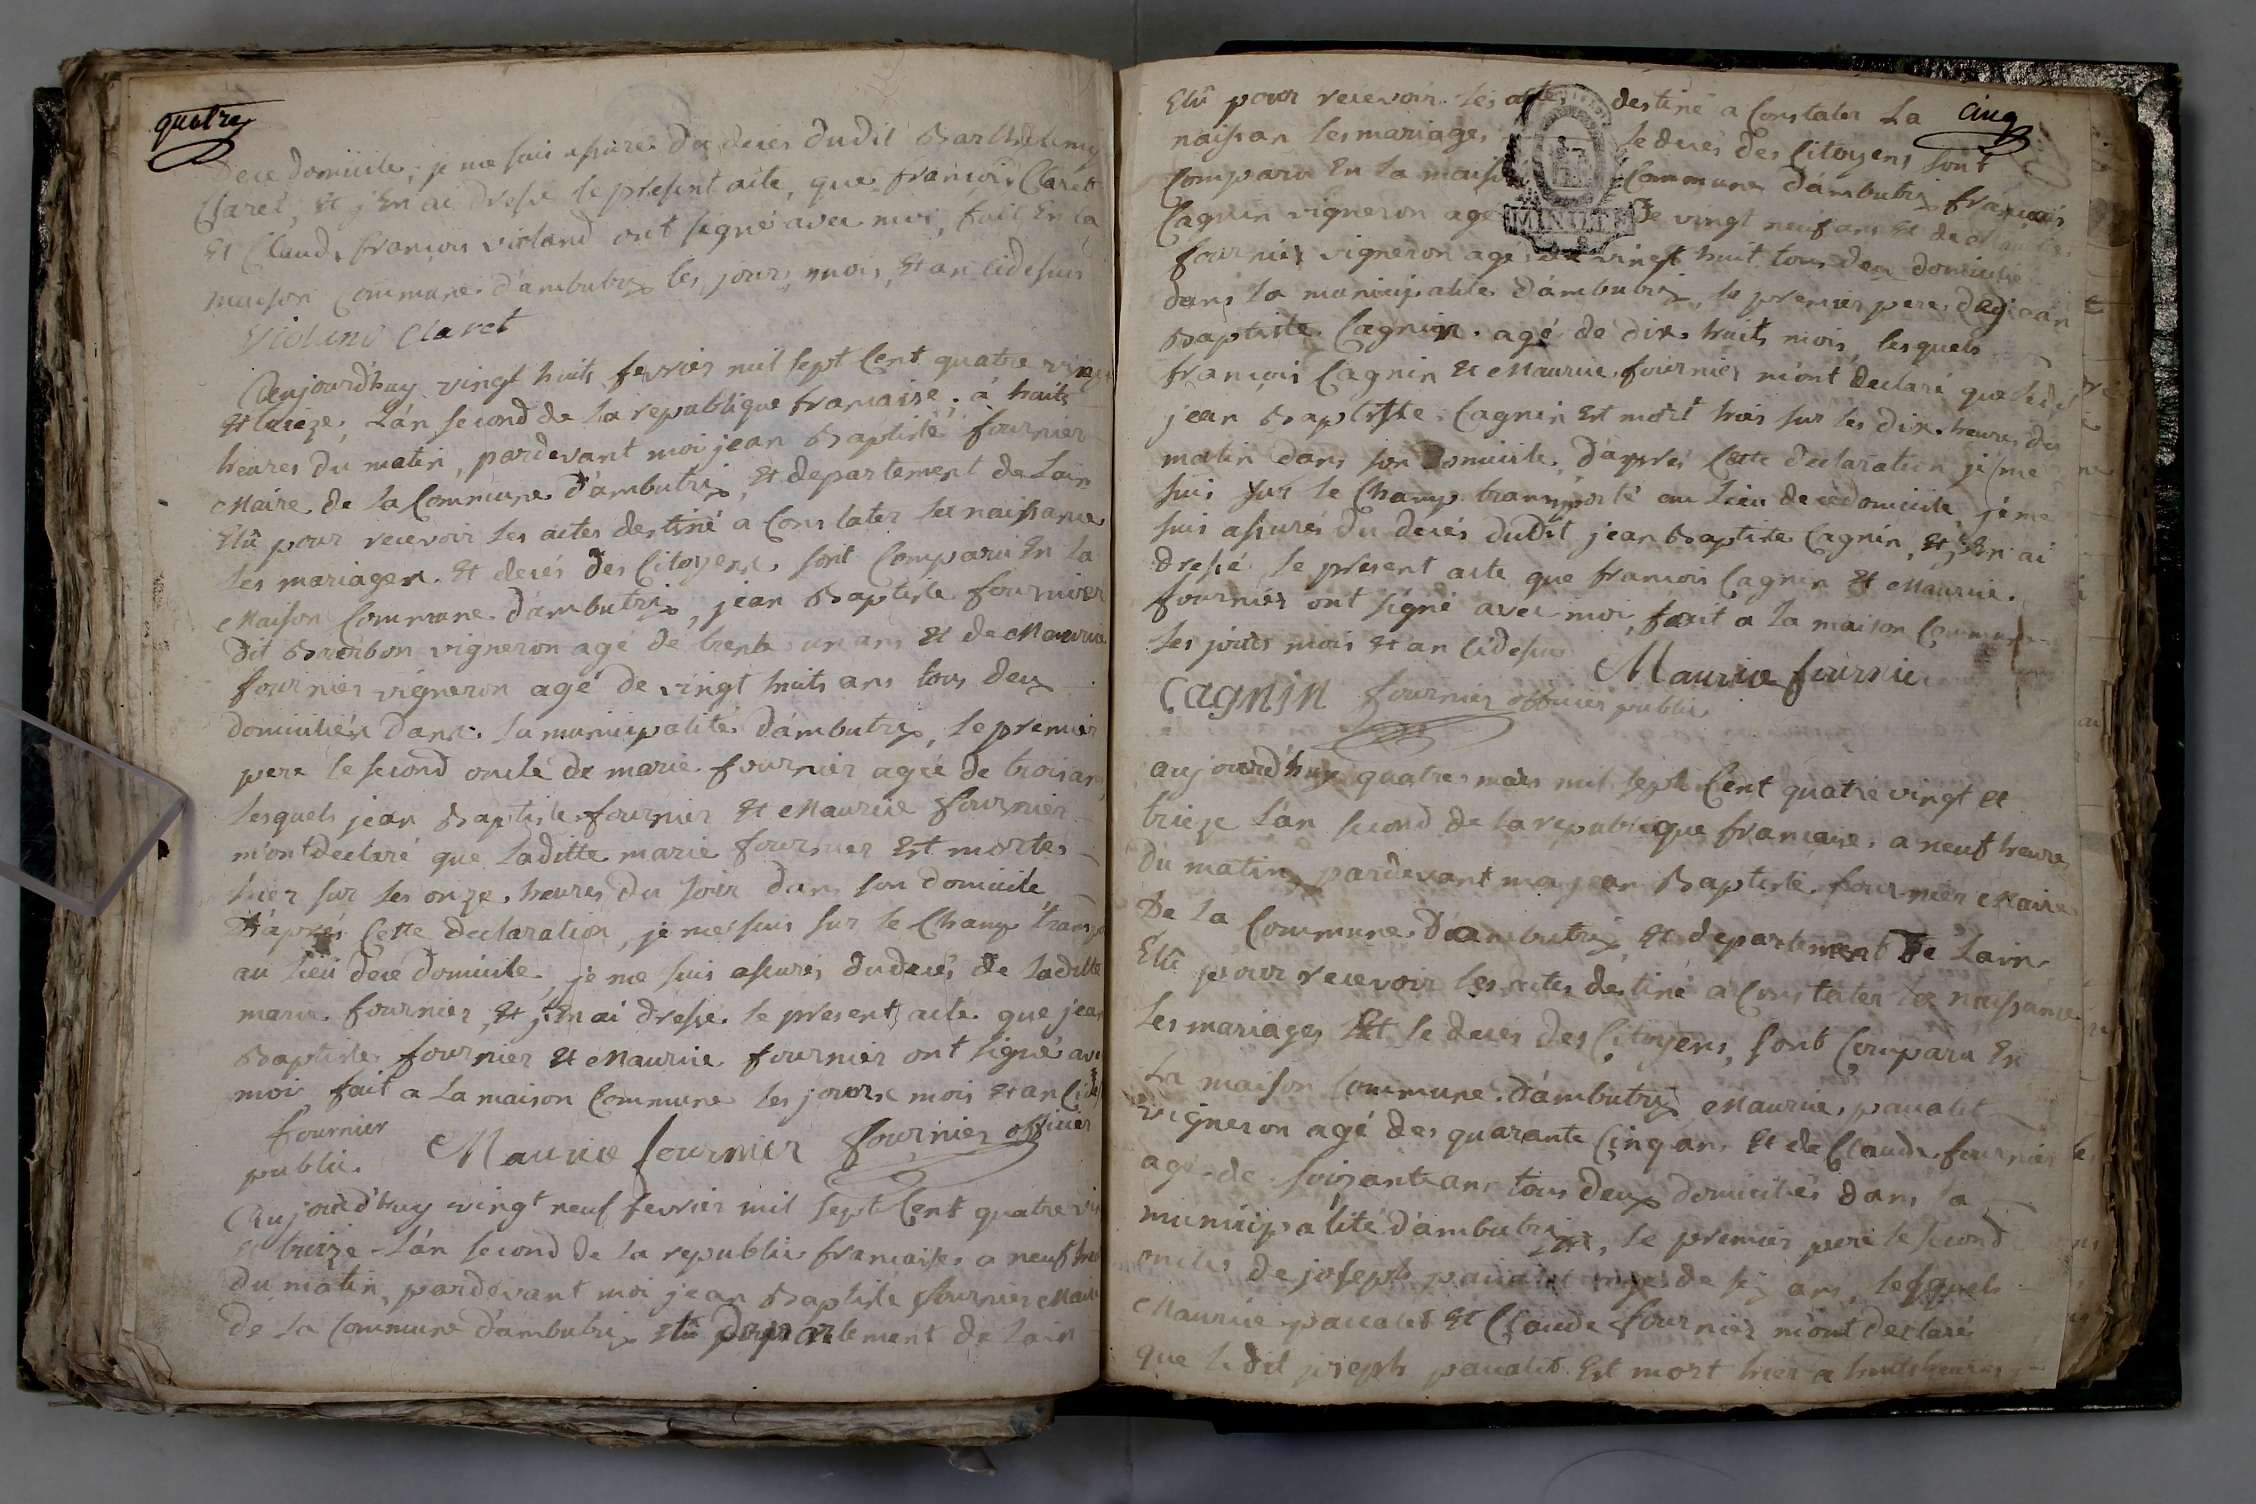 quatre
Dece domicile, je me suis assuré du deces dudit Barthelemy
Claret, et j'en ai dressé le present acte, que francois Claret
Et Claude francois violand ont signé avec moi, fait En la
maison Commune d'ambutrix les jours, mois, et an cidessus
Violand Claret
Aujourd'huy vingt huits fevrier mil sept Cent quatre vingt
et treize, L'an second de la republique francaise, à huits
heures du matin, pardevant moi jean Baptiste fournier
Maire de la Commune d'ambutrix, et departement de Lain
Elû pour recevoir les actes destiné a Constater les naissance
les mariages et decés des Citoyens, sont Comparu En la
Maison Commune d'ambutrix, jean Baptiste fournier
dit Bourbon vigneron agé de trente un ans et de Maurice
fournier vigneron agé de vingt huits ans tous deux
domiciliés dans la municipalité d'ambutrix, le premier
pere le second oncle de marie fournier agée de trois ans,
lesquels jean Baptiste fournier et Maurice fournier
m'ont declaré que laditte marie fournier est mortes
hier sur les onze heures du soir dans son domicile
D'aprés Cette declaration, je me suis sur le Champ
au lieu dece domicile, je me suis assurés dudecés de laditte
marie fournier, et j'en ai dresse le present acte que jean
Baptiste fournier et Maurice fournier ont signé
moi fait a la maison Commune les jours mois et an
fournier Maurice fournier fournier officier
public
Aujourd'huy vingt neuf fevrier mil sept Cent quatre
et treize L'an second de la republic francaises a neuf
du matin, pardevant moi jean Baptiste fournier Maire
de la Commune d'ambutrix elû departement de Lain
cinq
Elû pour recevoir les actes destiné a Constater La
naissan les mariages le decés des Citoyens, sont
Comparu En la maison Commune d'ambutrix francois
MINUTE
Cagnin vigneron agé de vingt neuf ans et de Maurice
fournier vigneron agé de vingt huit tous deux domicilié
dans la municipalité d'ambutrix, le premier pere de jean
Baptiste Cagnin agé de dix huits mois, lesquels
francois Cagnin et Maurice fournier m'ont declaré que ledit
jean Baptiste Cagnin est mort hier sur les dix heures du
matin dans son domicile, d'aprés Cette declaration je me
suis sur le Champ transporté au lieu de ce domicile je me
suis assurés du decés dudit jean Baptiste Cagnin, et j'en ai
dressé le present acte que francois Cagnin et Maurice
fournier ont signé avec moi, fait a la maison Commune
les jours mois et an cidessus
Maurice fournier
Cagnin fournier officier public
aujourd'huy quatre mars mil sept Cent quatre vingt et
trieze L'an second de la republique francaise, a neuf heures
du matin, pardevant moi jean Baptiste fournier Maire
De la Commune D'ambutrix, et departement De Lain
Elû pour recevoir les actes destiné a Constater la naissance
les mariages Et le deces des Citoyens, sont Comparu En
la maison Commune d'ambutrix Maurice pacalet
vigneron agé des quarante Cinq ans et de Claude fournier
agé de soixante ans tous deux domiciliés dans la
municipalité d'ambutrix, le premier pere le second
oncles de joseph pacalet de six ans, lesquels
Maurice pacalet et Claude fournier m'ont declaré
que le dit joseph pacalet Est mort hier a huits heures